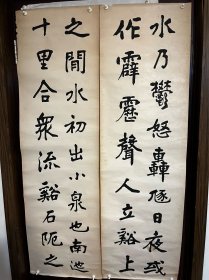 水乃鬱怒轟日夜或
作霹靂聲人立谿上
之閒水初出小泉也南迤
十里合衆流谿石阨之